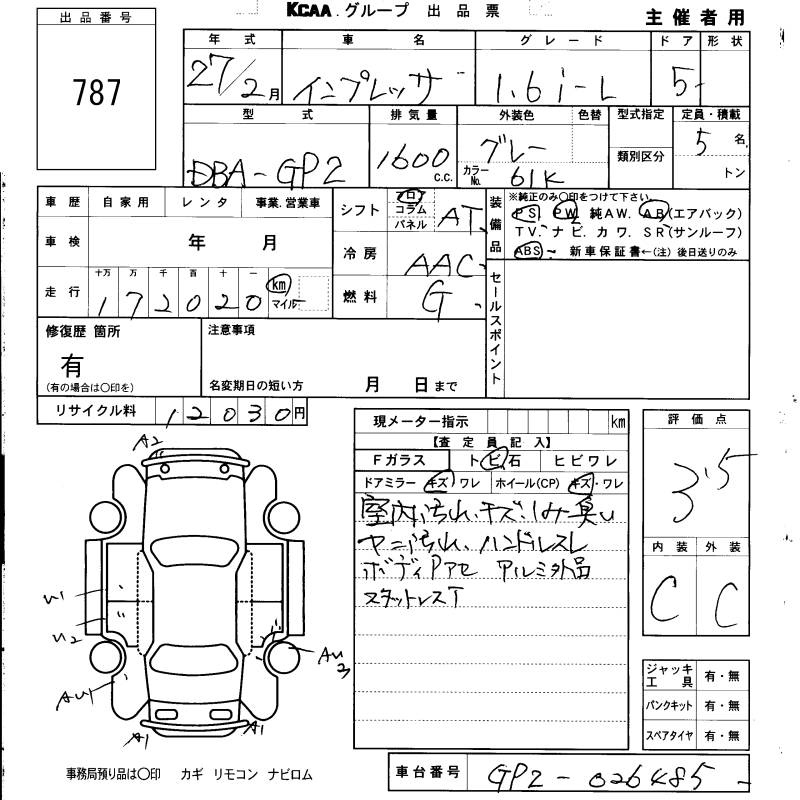 KCAA グループ 出品票
主催者用
出品番号
787
年式 車名 グレード ドア 形状
27/2月 インプレッサ 1.6 i-L 5
型式 排気量 外装色 色替 型式指定 定員・積載
DBA-GP2 1600 C.C. グレー 類別区分 5 名
カラーNo. 61K トン
車歴 自家用 レンタ 事業.営業車
車検 年 月
走行 十万 万 千 百 十 一
172020 km マイル
シフト フロア コラム パネル AT
冷房 AAC
燃料 G
装備品
※純正のみ〇印をつけて下さい。
PS. PW. 純AW. AB(エアバック)
TV. ナビ. カワ. SR(サンルーフ)
ABS・ 新車保証書←(注)後日送りのみ
セールスポイント
修復歴 箇所
有
(有の場合は〇印を)
注意事項
名変期日の短い方 月 日まで
リサイクル料 12030円
現メーター指示 km
【査定員記入】
Fガラス トビ石 ヒビワレ
ドアミラー キズ ワレ ホイール(CP) キズ・ワレ
室内汚れ、キズ、しみ臭い
ヤニ汚れ、ハンドルスレ
ボディPアセ アルミ外品
スタットレスT
評価点
3.5
内装 外装
C C
ジャッキ工具 有・無
パンクキット 有・無
スペアタイヤ 有・無
A2
U1
U2
AU1
A1
A1
AU3
事務局預り品は〇印 カギ リモコン ナビロム
車台番号 GP2-026485